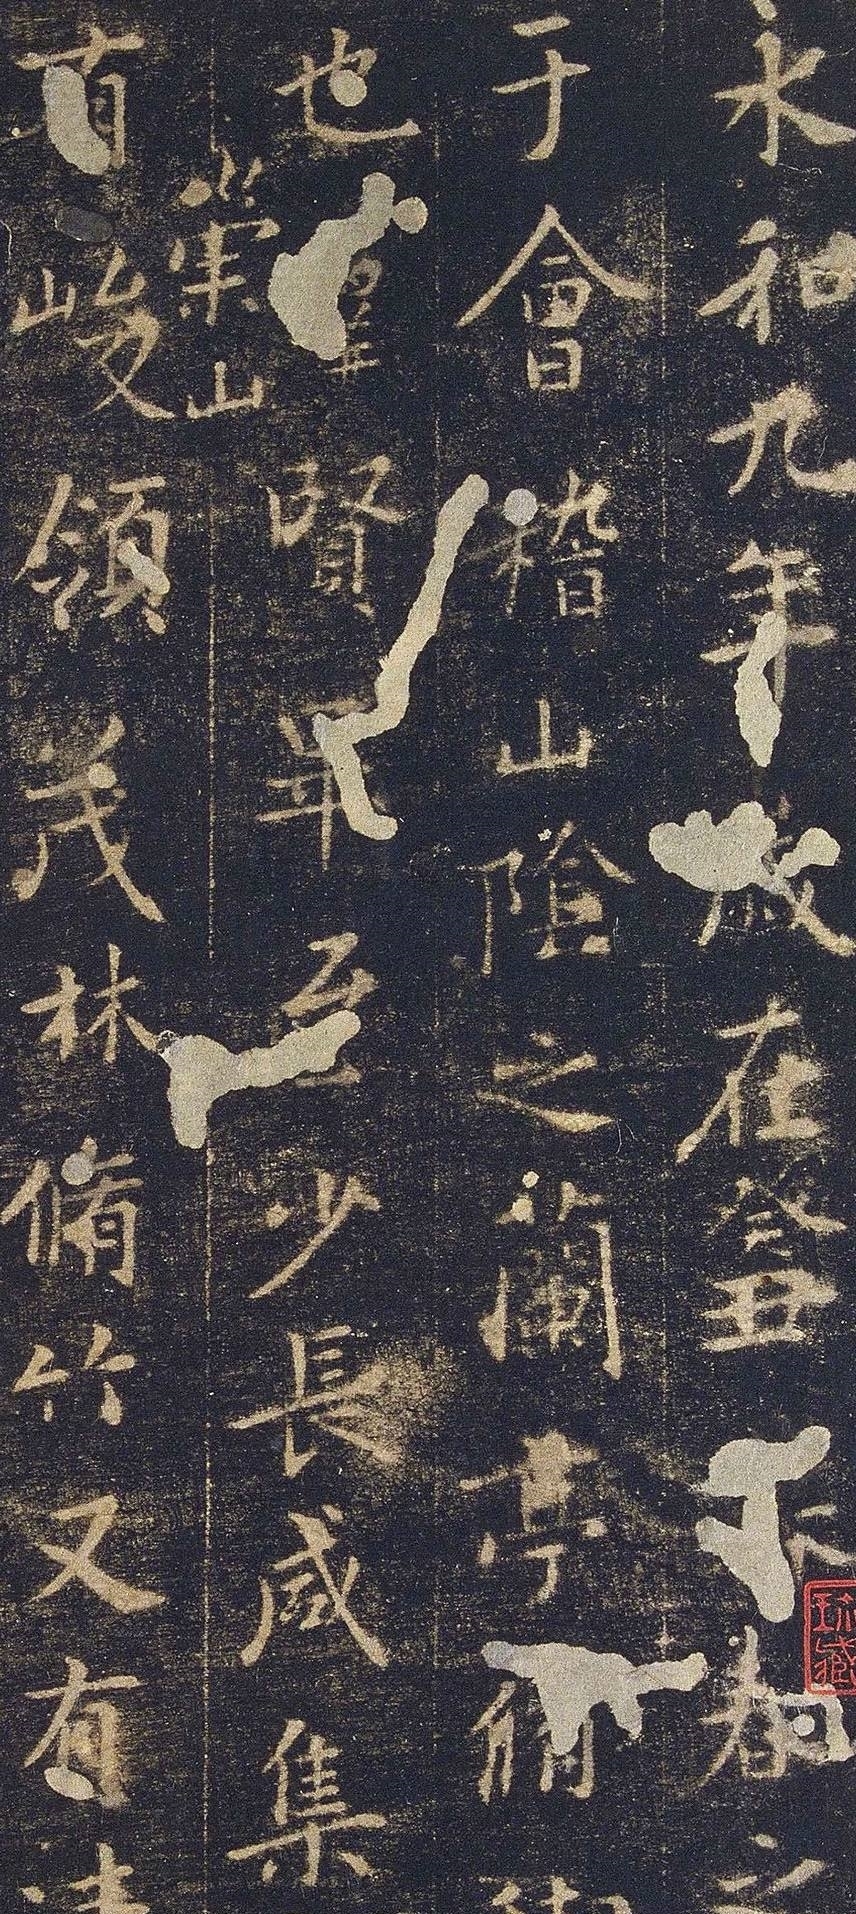 永和九年歲在癸丑暮春之
于會稽山陰之蘭亭脩
也羣賢畢至少長咸集
崇山
有峻領茂林脩竹又有清